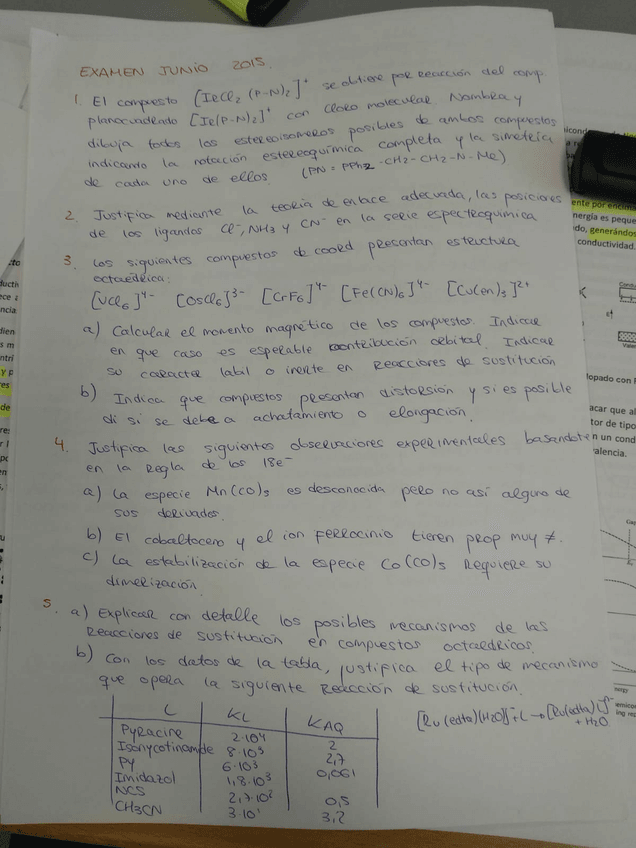 EXAMEN JUNIO 2015.
1. El compuesto [IrCl2 (P-N)2]+ se obtiene por reacción del comp.
planocuadrado [Ir(P-N)2]+ con cloro molecular. Nombra y
dibuja todos los estereoisomeros posibles de ambos compuestos
indicando la notación estereoquímica completa y la simetría
de cada uno de ellos. (PN = PPh2-CH2-CH2-N-Me)
2. Justifica mediante la teoría de enlace adecuada, las posiciones
de los ligandos Cl-, NH3 y CN- en la serie espectroquímica
3. Los siguientes compuestos de coord presentan estructura
octaédrica:
[VCl6]4- [OsCl6]3- [CrF6]4- [Fe(CN)6]4- [Cu(en)3]2+
a) Calcular el momento magnético de los compuestos. Indicar
en que caso es esperable contribución orbital. Indicar
su caracter labil o inerte en reacciones de sustitución
b) Indica que compuestos presentan distorsión y si es posible
di si se debe a achatamiento o elongación.
4. Justifica las siguientes observaciones experimentales basandote
en la regla de los 18e-
a) La especie Mn(CO)5 es desconocida pero no así alguno de
sus derivados.
b) El cobaltoceno y el ion ferrocinio tienen prop muy ≠.
c) La estabilización de la especie Co(CO)5 requiere su
dimerización.
5. a) Explicar con detalle los posibles mecanismos de las
reacciones de sustitución en compuestos octaedricos.
b) Con los datos de la tabla, justifica el tipo de mecanismo
que opera la siguiente reacción de sustitución.
L KL KAQ
[Ru(edta)(H2O)]-+L → [Ru(edta)L]-
+ H2O
Pyracine 2·104 2
Isonycotinamide 8·103 2,7
Py 6·103 0,061
Imidazol 1,8·103
NCS 2,7·102 0,5
CH3CN 3·101 3,2